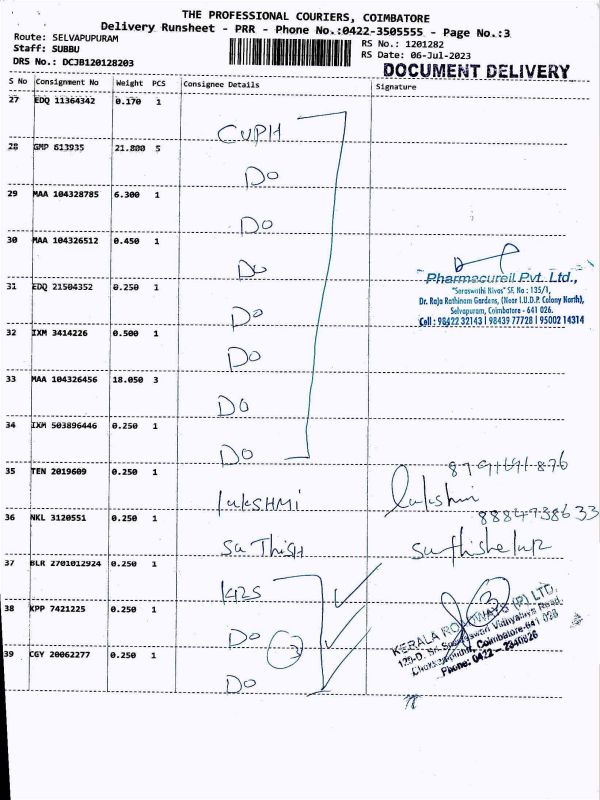 THE PROFESSIONAL COURIERS, COIMBATORE
Delivery Runsheet - PRR - Phone No.:0422-3505555 - Page No.:3
Route: SELVAPUPURAM
RS No.: 1201282
Staff: SUBBU
RS Date: 06-Jul-2023
DRS No.: DCJB120128203
DOCUMENT DELIVERY
S No Consignment No Weight PCS Consignee Details Signature
27 EDQ 11364342 0.170 1
CUPH
28 GMP 613935 21.800 5
Do
29 MAA 104328785 6.300 1
Do
30 MAA 104326512 0.450 1
Do
Pharmacureil Pvt. Ltd.,
"Saraswathi Nivas" SF. No : 135/1,
31 EDQ 21504352 0.250 1
Dr. Raja Rathinam Gardens, (Near I.U.D.P. Colony North),
Selvapuram, Coimbatore - 641 026.
Do
Cell : 98422 32143 | 98439 77728 | 95002 14314
32 IXM 3414226 0.500 1
Do
33 MAA 104326456 18.050 3
Do
34 IXM 503896446 0.250 1
Do
35 TEN 2019609 0.250 1
8791691876
lakSHMi
lakshmi
36 NKL 3120551 0.250 1
SaThish
37 BLR 2701012924 0.250 1
KRS
38 KPP 7421225 0.250 1
Do
3
3
KERALA ROADWAYS (P) LTD.
Coimbatore-641
Phone: 0422-
39 CGY 20062277 0.250 1
Do